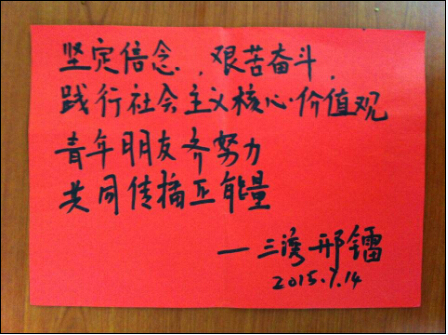 坚定信念，艰苦奋斗，
践行社会主义核心价值观
青年朋友齐努力
共同传播正能量
—三湾 邢镭
2015.1.14